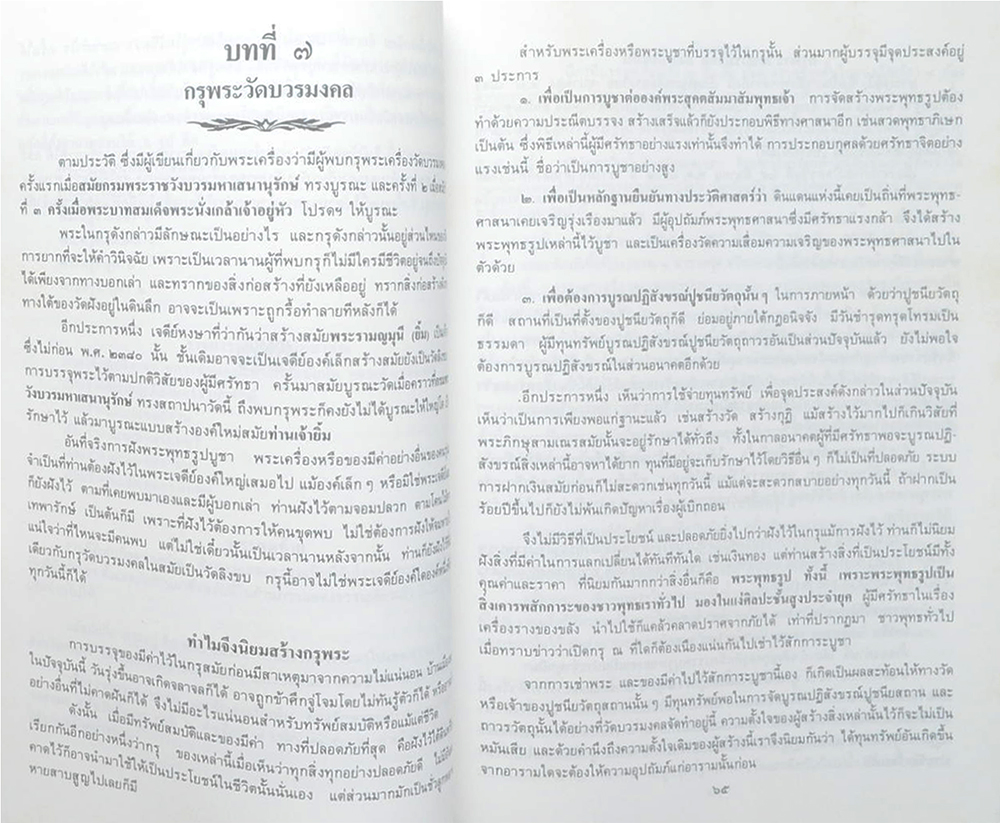 บทที่ ๗
กรุพระวัดบวรมงคล
ตามประวัติ ซึ่งมีผู้เขียนเกี่ยวกับพระเครื่องว่ามีผู้พบกรุพระเครื่องวัดบวรมงคล
ครั้งแรกเมื่อสมัยกรมพระราชวังบวรมหาเสนานุรักษ์ ทรงบูรณะ และครั้งที่ ๒
ที่ ๓ ครั้งเมื่อพระบาทสมเด็จพระนั่งเกล้าเจ้าอยู่หัว โปรดฯ ให้บูรณะ
พระในกรุดังกล่าวมีลักษณะเป็นอย่างไร และกรุดังกล่าวนั้นอยู่ส่วนไหน
การยากที่จะให้คำวินิจฉัย เพราะเป็นเวลานานผู้ที่พบกรุก็ไม่มีใครมีชีวิตอยู่จนถึง
ได้เพียงจากทางบอกเล่า และทรากของสิ่งก่อสร้างที่ยังเหลืออยู่ ทรากสิ่งก่อสร้าง
ทางใต้ของวัดฝังอยู่ในดินลึก อาจจะเป็นเพราะถูกรื้อทำลายทีหลังก็ได้
อีกประการหนึ่ง เจดีย์หงษาที่ว่ากันว่าสร้างสมัยพระรามญมุนี (ยิ้ม)
ซึ่งไม่ก่อน พ.ศ. ๒๓๘๐ นั้น ชั้นเดิมอาจจะเป็นเจดีย์องค์เล็กสร้างสมัยยังเป็นวัด
การบรรจุพระไว้ตามปกติวิสัยของผู้มีศรัทธา ครั้นมาสมัยบูรณะวัดเมื่อคราวที่
วังบวรมหาเสนานุรักษ์ ทรงสถาปนาวัดนี้ ถึงพบกรุพระก็คงยังไม่ได้บูรณะให้ใหญ่โต
รักษาไว้ แล้วมาบูรณะแบบสร้างองค์ใหม่สมัยท่านเจ้ายิ้ม
อันที่จริงการฝังพระพุทธรูปบูชา พระเครื่องหรือของมีค่าอย่างอื่น
จำเป็นที่ท่านต้องฝังไว้ในพระเจดีย์องค์ใหญ่เสมอไป แม้องค์เล็ก ๆ หรือมิใช่พระเจดีย์
ก็ยังฝังไว้ ตามที่เคยพบมาเองและมีผู้บอกเล่า ท่านฝังไว้ตามจอมปลวก ตามโคน
เทพารักษ์ เป็นต้นก็มี เพราะที่ฝังไว้ต้องการให้คนขุดพบ ไม่ใช่ต้องการฝังให้
แน่ใจว่าที่ไหนจะมีคนพบ แต่ไม่ใช่เดี๋ยวนั้นเป็นเวลานานหลังจากนั้น ท่านก็
เดียวกับกรุวัดบวรมงคลในสมัยเป็นวัดลิงขบ กรุนี้อาจไม่ใช่พระเจดีย์องค์ใดองค์
ทุกวันนี้ก็ได้
ทำไมจึงนิยมสร้างกรุพระ
การบรรจุของมีค่าไว้ในกรุสมัยก่อนมีสาเหตุมาจากความไม่แน่นอน
ในปัจจุบันนี้ วันรุ่งขึ้นอาจเกิดจลาจลก็ได้ อาจถูกข้าศึกจู่โจมโดยไม่ทันรู้ตัวก็ได้
อย่างอื่นที่ไม่คาดฝันก็ได้ จึงไม่มีอะไรแน่นอนสำหรับทรัพย์สมบัติหรือแม้แต่ชีวิต
ดังนั้น เมื่อมีทรัพย์สมบัติและของมีค่า ทางที่ปลอดภัยที่สุด คือฝังไว้ใต้
เรียกกันอีกอย่างหนึ่งว่ากรุ ของเหล่านี้เมื่อเห็นว่าทุกสิ่งทุกอย่างปลอดภัยดี
คาดไว้ก็อาจนำมาใช้ให้เป็นประโยชน์ในชีวิตนั้นนั่นเอง แต่ส่วนมากมักเป็นชั่ว
หายสาบสูญไปเลยก็มี
สำหรับพระเครื่องหรือพระบูชาที่บรรจุไว้ในกรุนั้น ส่วนมากผู้บรรจุมีจุดประสงค์อยู่
๓ ประการ
๑. เพื่อเป็นการบูชาต่อองค์พระสุคตสัมมาสัมพุทธเจ้า การจัดสร้างพระพุทธรูปต้อง
ทำด้วยความประณีตบรรจง สร้างเสร็จแล้วก็ยังประกอบพิธีทางศาสนาอีก เช่นสวดพุทธาภิเษก
เป็นต้น ซึ่งพิธีเหล่านี้ผู้มีศรัทธาอย่างแรงเท่านั้นจึงทำได้ การประกอบกุศลด้วยศรัทธาจิตอย่าง
แรงเช่นนี้ ชื่อว่าเป็นการบูชาอย่างสูง
๒. เพื่อเป็นหลักฐานยืนยันทางประวัติศาสตร์ว่า ดินแดนแห่งนี้เคยเป็นถิ่นที่พระพุทธ-
ศาสนาเคยเจริญรุ่งเรืองมาแล้ว มีผู้อุปถัมภ์พระพุทธศาสนาซึ่งมีศรัทธาแรงกล้า จึงได้สร้าง
พระพุทธรูปเหล่านี้ไว้บูชา และเป็นเครื่องวัดความเสื่อมความเจริญของพระพุทธศาสนาไปใน
ตัวด้วย
๓. เพื่อต้องการบูรณปฏิสังขรณ์ปูชนียวัตถุนั้น ๆ ในการภายหน้า ด้วยว่าปูชนียวัตถุ
ก็ดี สถานที่เป็นที่ตั้งของปูชนียวัตถุก็ดี ย่อมอยู่ภายใต้กฎอนิจจัง มีวันชำรุดทรุดโทรมเป็น
ธรรมดา ผู้มีทุนทรัพย์บูรณปฏิสังขรณ์ปูชนียวัตถุถาวรอันเป็นส่วนปัจจุบันแล้ว ยังไม่พอใจ
ต้องการบูรณปฏิสังขรณ์ในส่วนอนาคตอีกด้วย
.อีกประการหนึ่ง เห็นว่าการใช้จ่ายทุนทรัพย์ เพื่อจุดประสงค์ดังกล่าวในส่วนปัจจุบัน
เห็นว่าเป็นการเพียงพอแก่ฐานะแล้ว เช่นสร้างวัด สร้างกุฏิ แม้สร้างไว้มากไปก็เกินวิสัยที่
พระภิกษุสามเณรสมัยนั้นจะอยู่รักษาได้ทั่วถึง ทั้งในกาลอนาคตผู้ที่มีศรัทธาพอจะบูรณปฏิ-
สังขรณ์สิ่งเหล่านี้อาจหาได้ยาก ทุนที่มีอยู่จะเก็บรักษาไว้โดยวิธีอื่น ๆ ก็ไม่เป็นที่ปลอดภัย ระบบ
การฝากเงินสมัยก่อนก็ไม่สะดวกเช่นทุกวันนี้ แม้แต่จะสะดวกสบายอย่างทุกวันนี้ ถ้าฝากเป็น
ร้อยปีขึ้นไปก็ยังไม่พ้นเกิดปัญหาเรื่องผู้เบิกถอน
จึงไม่มีวิธีที่เป็นประโยชน์ และปลอดภัยยิ่งไปกว่าฝังไว้ในกรุแม้การฝังไว้ ท่านก็ไม่นิยม
ฝังสิ่งที่มีค่าในการแลกเปลี่ยนได้ทันทีทันใด เช่นเงินทอง แต่ท่านสร้างสิ่งที่เป็นประโยชน์มีทั้ง
คุณค่าและราคา ที่นิยมกันมากกว่าสิ่งอื่นก็คือ พระพุทธรูป ทั้งนี้ เพราะพระพุทธรูปเป็น
สิ่งเคารพสักการะของชาวพุทธเราทั่วไป มองในแง่ศิลปะชั้นสูงประจำยุค ผู้มีศรัทธาในเรื่อง
เครื่องรางของขลัง นำไปใช้ก็แคล้วคลาดปราศจากภัยได้ เท่าที่ปรากฏมา ชาวพุทธทั่วไป
เมื่อทราบข่าวว่าเปิดกรุ ณ ที่ใดก็ต้องเนืองแน่นกันไปเช่าไว้สักการะบูชา
จากการเช่าพระ และของมีค่าไปไว้สักการะบูชานี้เอง ก็เกิดเป็นผลสะท้อนให้ทางวัด
หรือเจ้าของปูชนียวัตถุสถานนั้น ๆ มีทุนทรัพย์พอในการจัดบูรณปฏิสังขรณ์ปูชนียสถาน และ
ถาวรวัตถุนั้นได้อย่างที่วัดบวรมงคลจัดทำอยู่นี้ ความตั้งใจของผู้สร้างสิ่งเหล่านั้นไว้ก็จะไม่เป็น
หมันเสีย และด้วยคำนึงถึงความตั้งใจเดิมของผู้สร้างนี้เราจึงนิยมกันว่า ได้ทุนทรัพย์อันเกิดขึ้น
จากอารามใดจะต้องให้ความอุปถัมภ์แก่อารามนั้นก่อน
๖๕